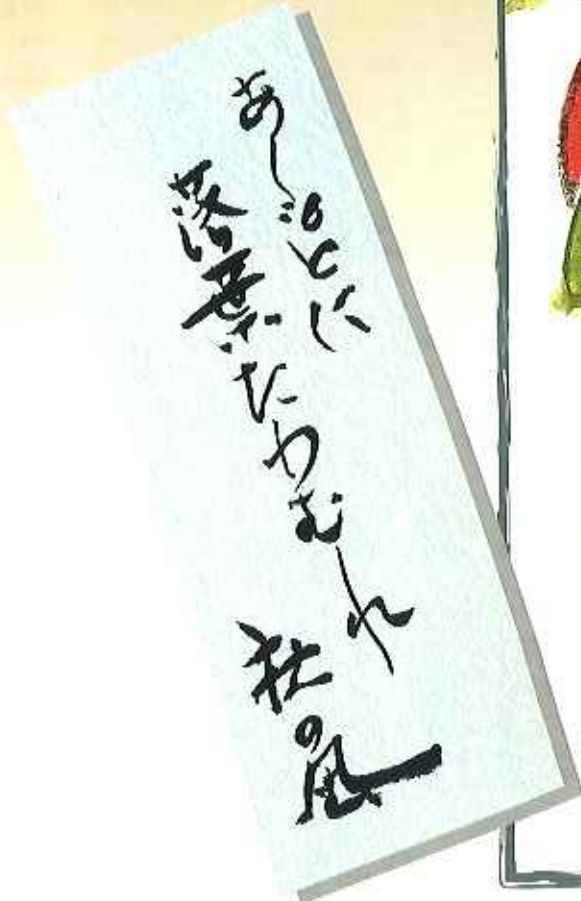 あしもとに
落葉たわむれ
杜の風